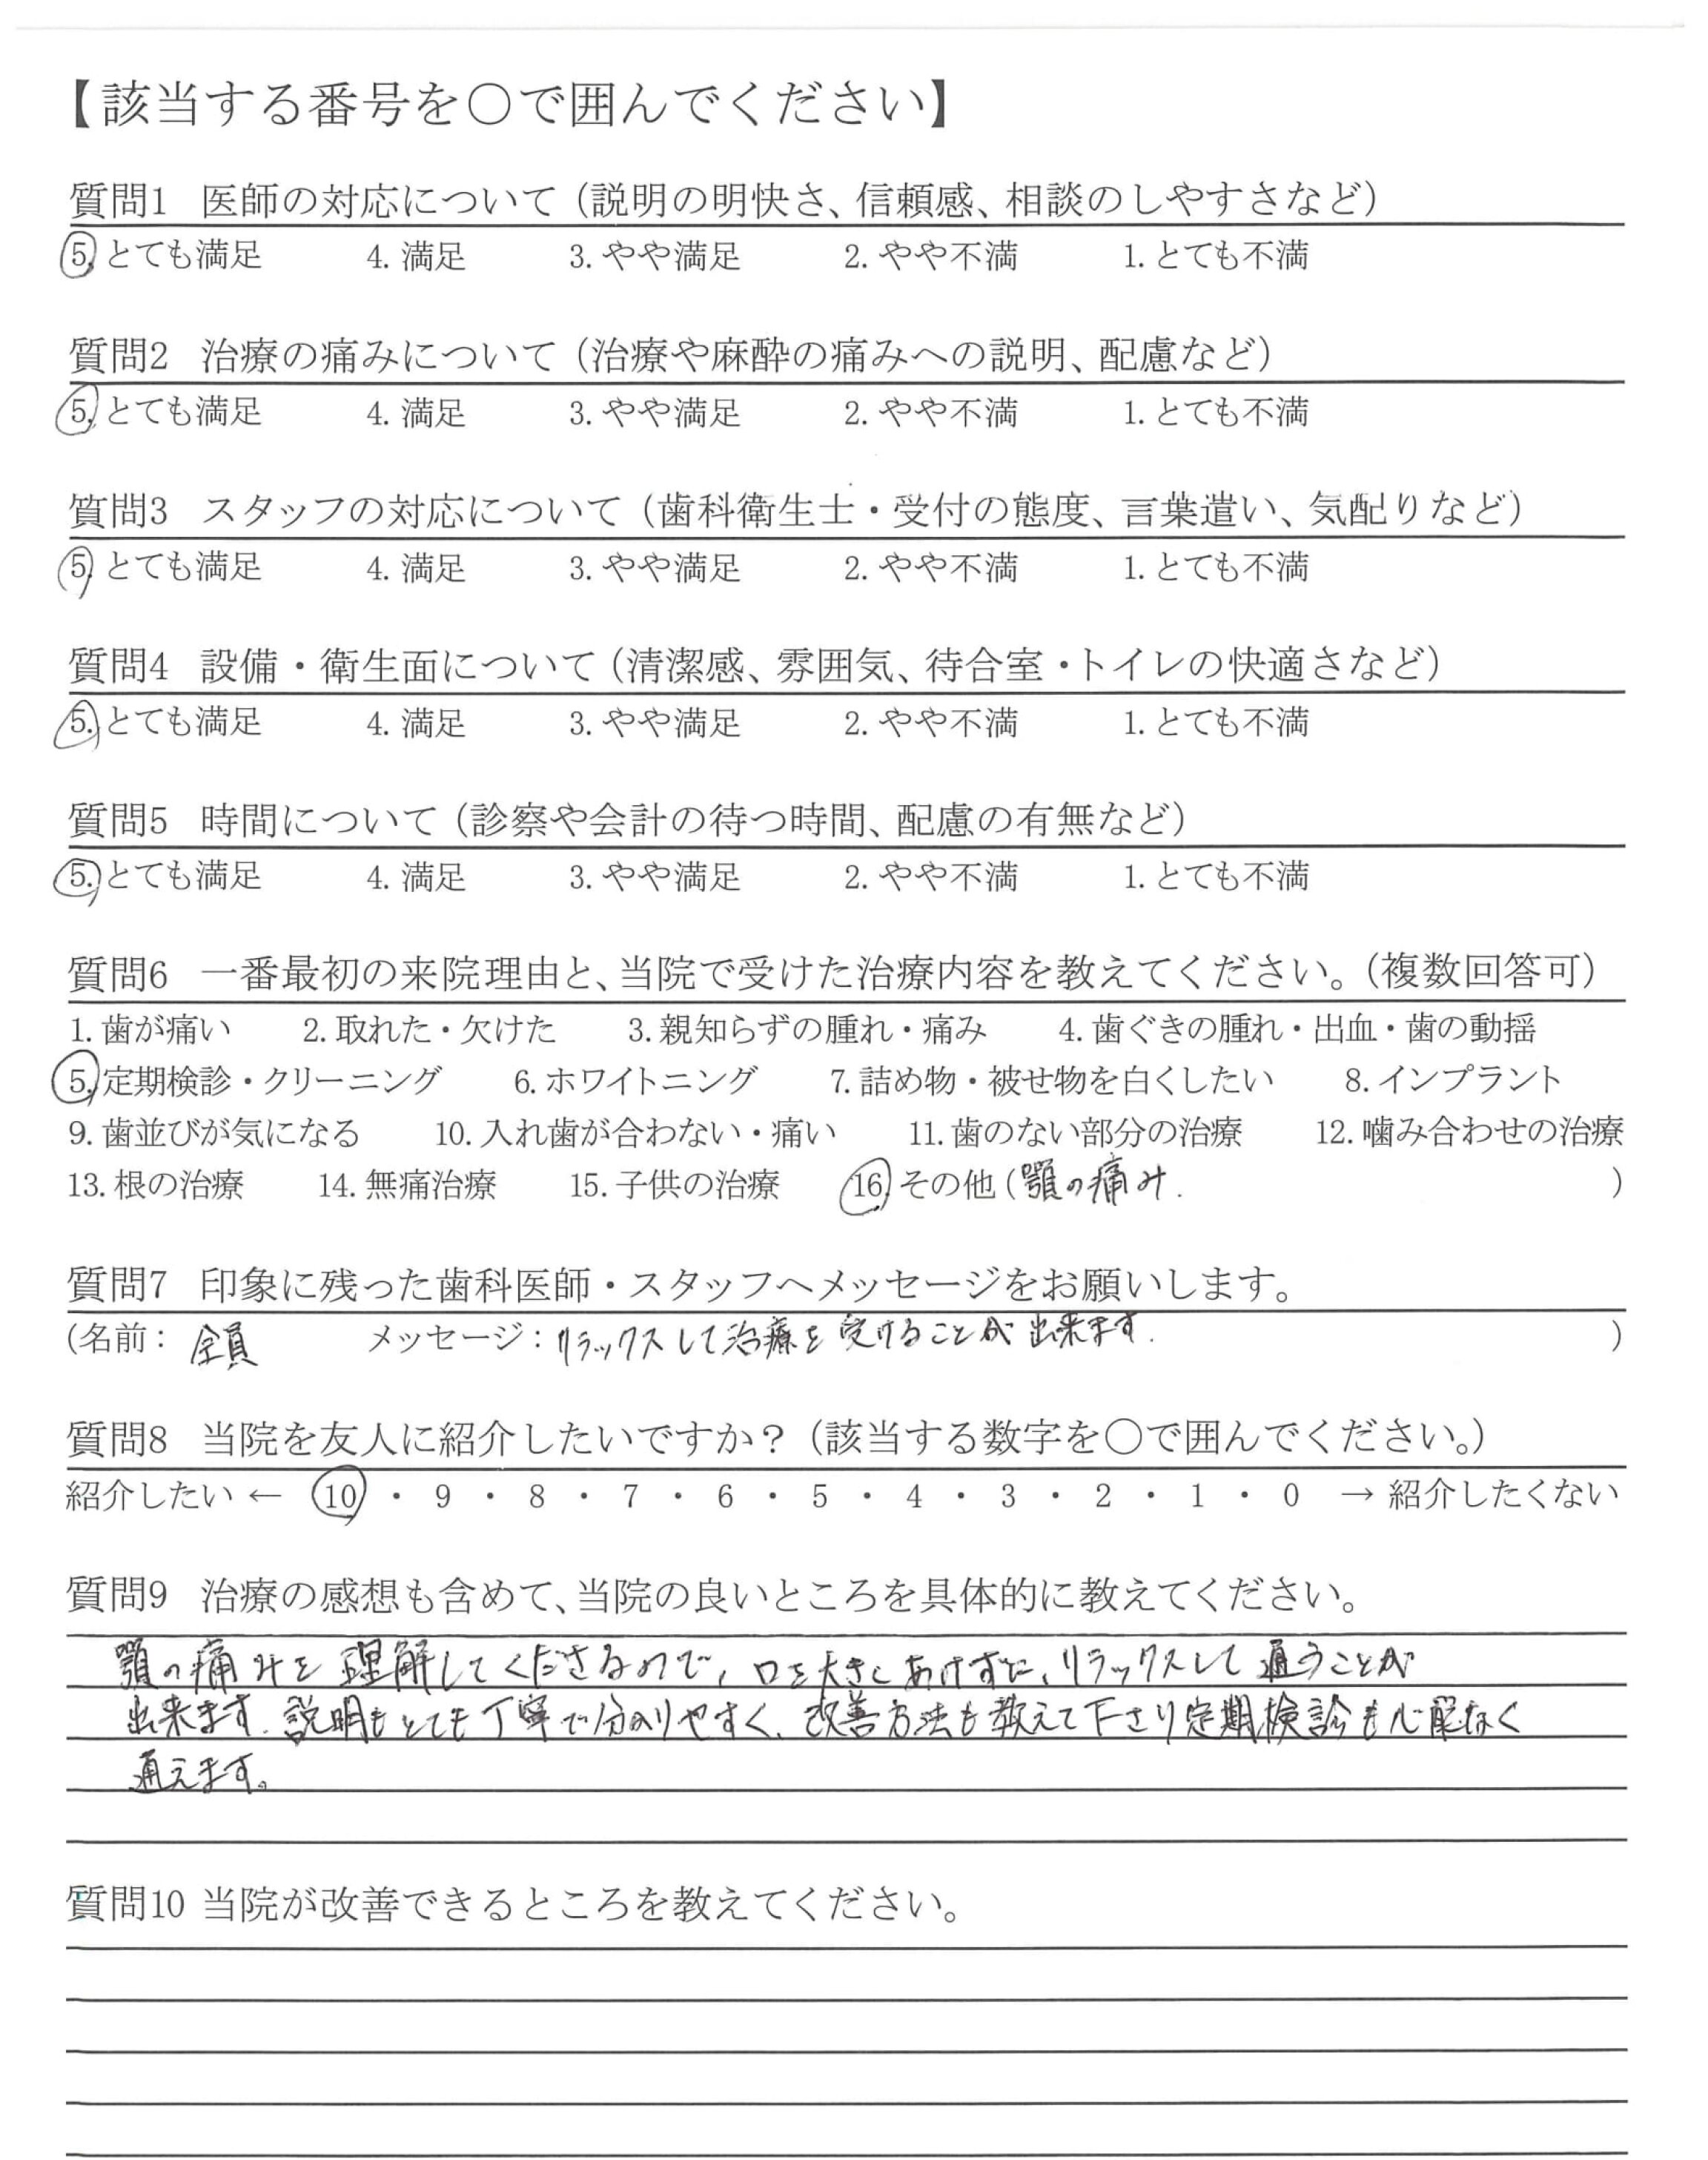 【該当する番号を○で囲んでください】
質問1 医師の対応について（説明の明快さ、信頼感、相談のしやすさなど）
5. とても満足 4. 満足 3. やや満足 2. やや不満 1. とても不満
質問2 治療の痛みについて（治療や麻酔の痛みへの説明、配慮など）
5. とても満足 4. 満足 3. やや満足 2. やや不満 1. とても不満
質問3 スタッフの対応について（歯科衛生士・受付の態度、言葉遣い、気配りなど）
5. とても満足 4. 満足 3. やや満足 2. やや不満 1. とても不満
質問4 設備・衛生面について（清潔感、雰囲気、待合室・トイレの快適さなど）
5. とても満足 4. 満足 3. やや満足 2. やや不満 1. とても不満
質問5 時間について（診察や会計の待つ時間、配慮の有無など）
5. とても満足 4. 満足 3. やや満足 2. やや不満 1. とても不満
質問6 一番最初の来院理由と、当院で受けた治療内容を教えてください。（複数回答可）
1. 歯が痛い 2. 取れた・欠けた 3. 親知らずの腫れ・痛み 4. 歯ぐきの腫れ・出血・歯の動揺
5. 定期検診・クリーニング 6. ホワイトニング 7. 詰め物・被せ物を白くしたい 8. インプラント
9. 歯並びが気になる 10. 入れ歯が合わない・痛い 11. 歯のない部分の治療 12. 噛み合わせの治療
13. 根の治療 14. 無痛治療 15. 子供の治療 16. その他（顎の痛み. ）
質問7 印象に残った歯科医師・スタッフへメッセージをお願いします。
（名前： 全員 メッセージ：リラックスして治療を受けることが出来ます. ）
質問8 当院を友人に紹介したいですか？（該当する数字を○で囲んでください。）
紹介したい ← 10 ・ 9 ・ 8 ・ 7 ・ 6 ・ 5 ・ 4 ・ 3 ・ 2 ・ 1 ・ 0 → 紹介したくない
質問9 治療の感想も含めて、当院の良いところを具体的に教えてください。
顎の痛みを理解してくださるので、口を大きくあけずに、リラックスして通うことが
出来ます. 説明もとても丁寧で分かりやすく、改善方法も教えて下さり定期検診も心配なく
通えます。
質問10 当院が改善できるところを教えてください。